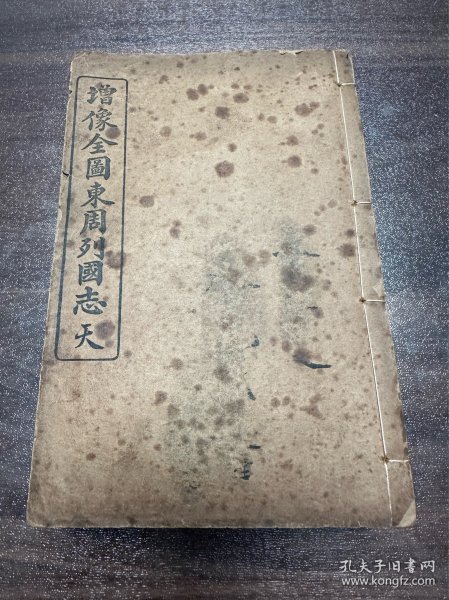 增像全圖東周列國志天
孔夫子旧书网
www.kongfz.com